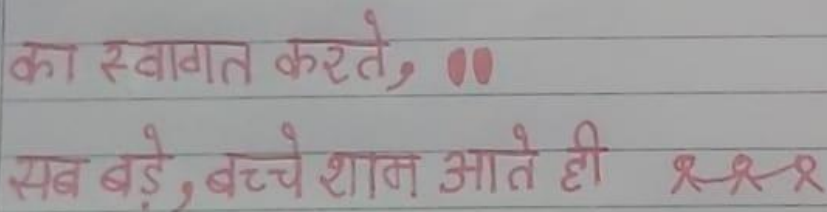 का स्वागत करते, ॥
सब बड़े, बच्चे शाम आते ही